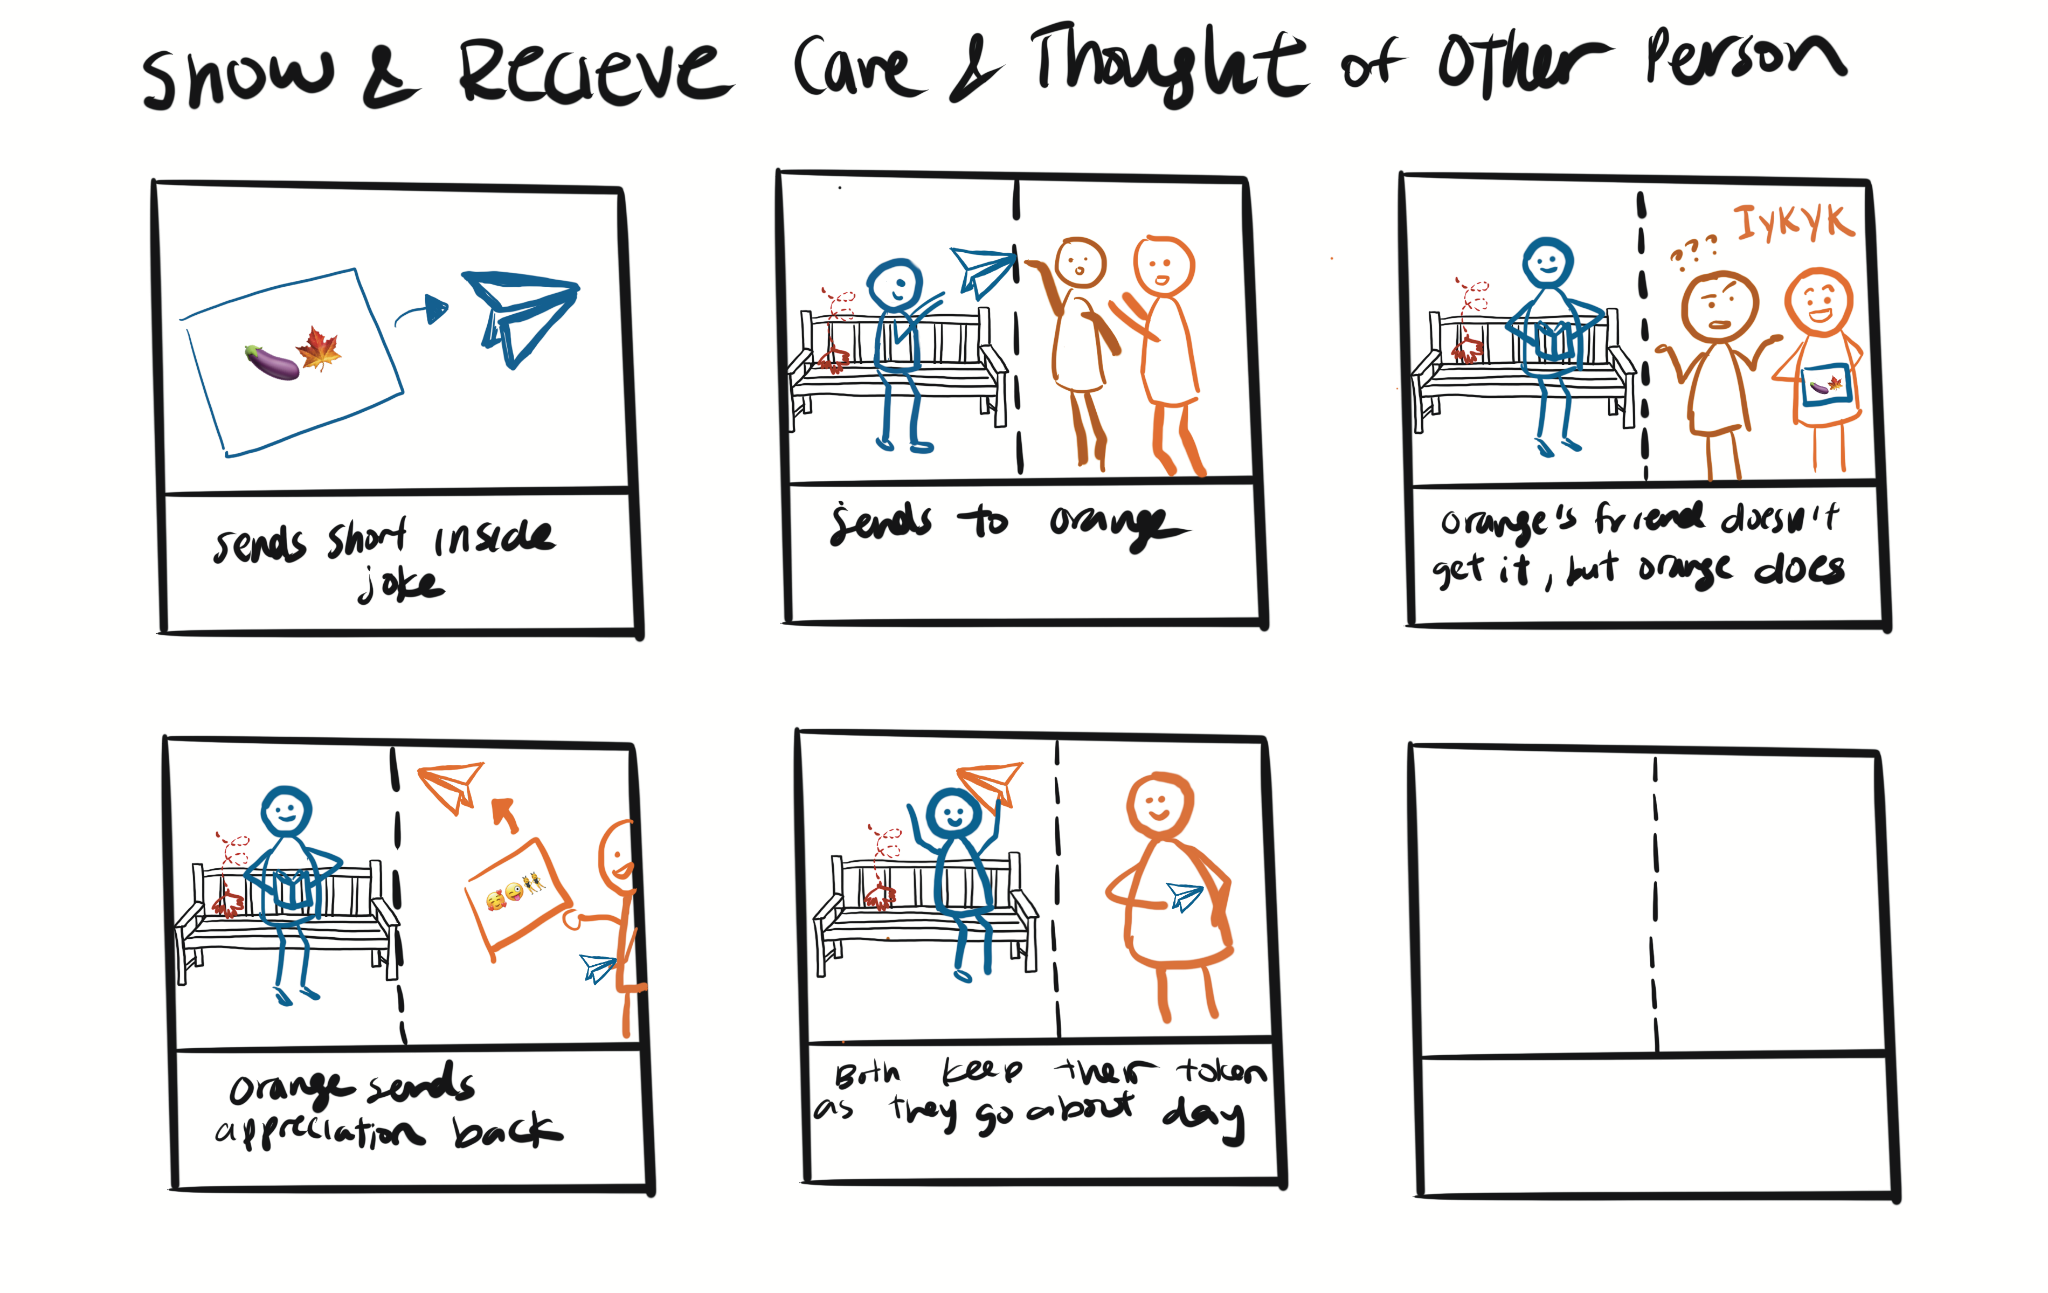 Show & Recieve Care & Thought of Other Person
sends short inside
joke
sends to orange
IYKYK
???
orange's friend doesn't
get it, but orange does
orange sends
appreciation back
Both keep their token
as they go about day